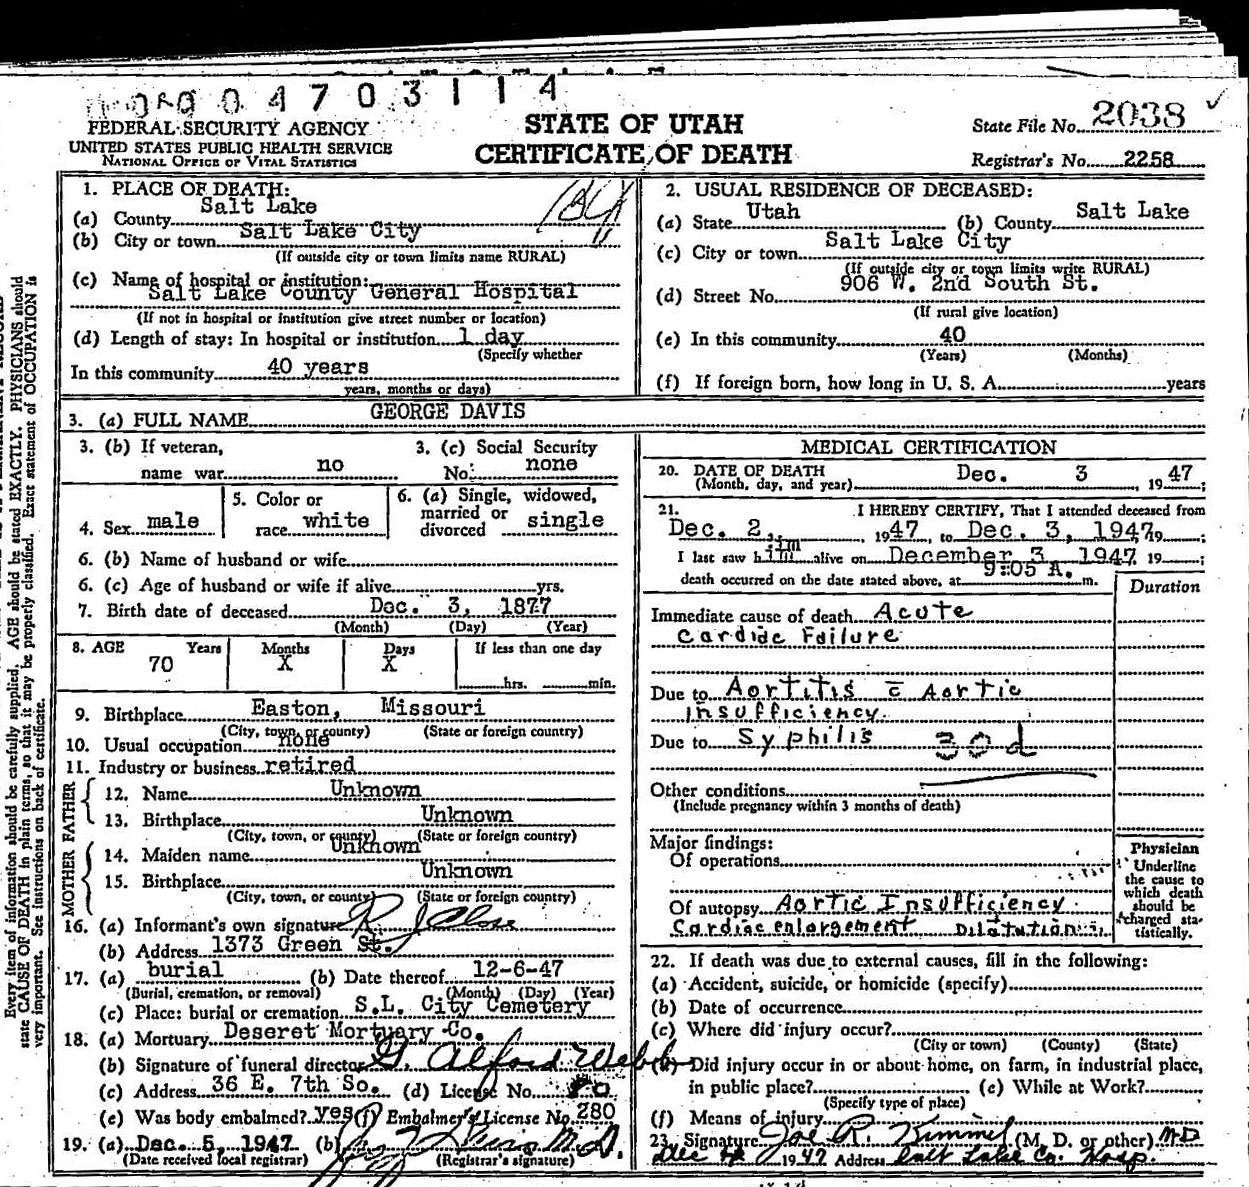 0 4 7 0 3 1 1 4
FEDERAL SECURITY AGENCY
UNITED STATES PUBLIC HEALTH SERVICE
NATIONAL OFFICE OF VITAL STATISTICS
STATE OF UTAH
CERTIFICATE OF DEATH
State File No. 2038
Registrar's No. 2258
1. PLACE OF DEATH:
(a) County Salt Lake
(b) City or town Salt Lake City
(If outside city or town limits name RURAL)
(c) Name of hospital or institution:
Salt Lake County General Hospital
(If not in hospital or institution give street number or location)
(d) Length of stay: In hospital or institution 1 day
(Specify whether
In this community 40 years
years, months or days)
2. USUAL RESIDENCE OF DECEASED:
(a) State Utah (b) County Salt Lake
(c) City or town Salt Lake City
(If outside city or town limits write RURAL)
(d) Street No. 906 W. 2nd South St.
(If rural give location)
(e) In this community 40
(Years) (Months)
(f) If foreign born, how long in U. S. A. years
3. (a) FULL NAME GEORGE DAVIS
3. (b) If veteran, name war no
3. (c) Social Security No. none
4. Sex male
5. Color or race white
6. (a) Single, widowed, married or divorced single
6. (b) Name of husband or wife
6. (c) Age of husband or wife if alive yrs.
7. Birth date of deceased Dec. 3, 1877
(Month) (Day) (Year)
8. AGE Years Months Days If less than one day
70 X X hrs. min.
9. Birthplace Easton, Missouri
(City, town, or county) (State or foreign country)
10. Usual occupation none
11. Industry or business retired
FATHER
12. Name Unknown
13. Birthplace Unknown
(City, town, or county) (State or foreign country)
MOTHER
14. Maiden name Unknown
15. Birthplace Unknown
(City, town, or county) (State or foreign country)
16. (a) Informant's own signature
(b) Address 1373 Green St.
17. (a) burial (b) Date thereof 12-6-47
(Burial, cremation, or removal) (Month) (Day) (Year)
(c) Place: burial or cremation S.L. City Cemetery
18. (a) Mortuary Deseret Mortuary Co.
(b) Signature of funeral director G. Alford Webb
(c) Address 36 E. 7th So. (d) License No.
(e) Was body embalmed? yes (f) Embalmer's License No. 280
19. (a) Dec. 5, 1947 (b)
(Date received local registrar) (Registrar's signature)
MEDICAL CERTIFICATION
20. DATE OF DEATH
(Month, day, and year) Dec. 3 19 47;
21. I HEREBY CERTIFY, That I attended deceased from
Dec. 2, 1947, to Dec. 3, 1947 19 ;
I last saw him alive on December 3, 1947 19 ;
death occurred on the date stated above, at 9:05 A. m.
Duration
Immediate cause of death Acute
Cardiac Failure
Due to Aortitis c̄ Aortic
Insufficiency
Due to Syphilis 30d
Other conditions
(Include pregnancy within 3 months of death)
Major findings:
Of operations
Of autopsy Aortic Insufficiency
Cardiac enlargement Dilatation
Physician
Underline the cause to which death should be charged statistically.
22. If death was due to external causes, fill in the following:
(a) Accident, suicide, or homicide (specify)
(b) Date of occurrence
(c) Where did injury occur?
(City or town) (County) (State)
(d) Did injury occur in or about home, on farm, in industrial place,
in public place? (e) While at Work?
(Specify type of place)
(f) Means of injury
23. Signature Joe R. Kimmel (M. D. or other) MD
Dec 1947 Address Salt Lake Co. Hosp.
Every item of information should be carefully supplied. AGE should be stated EXACTLY. PHYSICIANS should
state CAUSE OF DEATH in plain terms, so that it may be properly classified. Exact statement of OCCUPATION is
very important. See instructions on back of certificate.